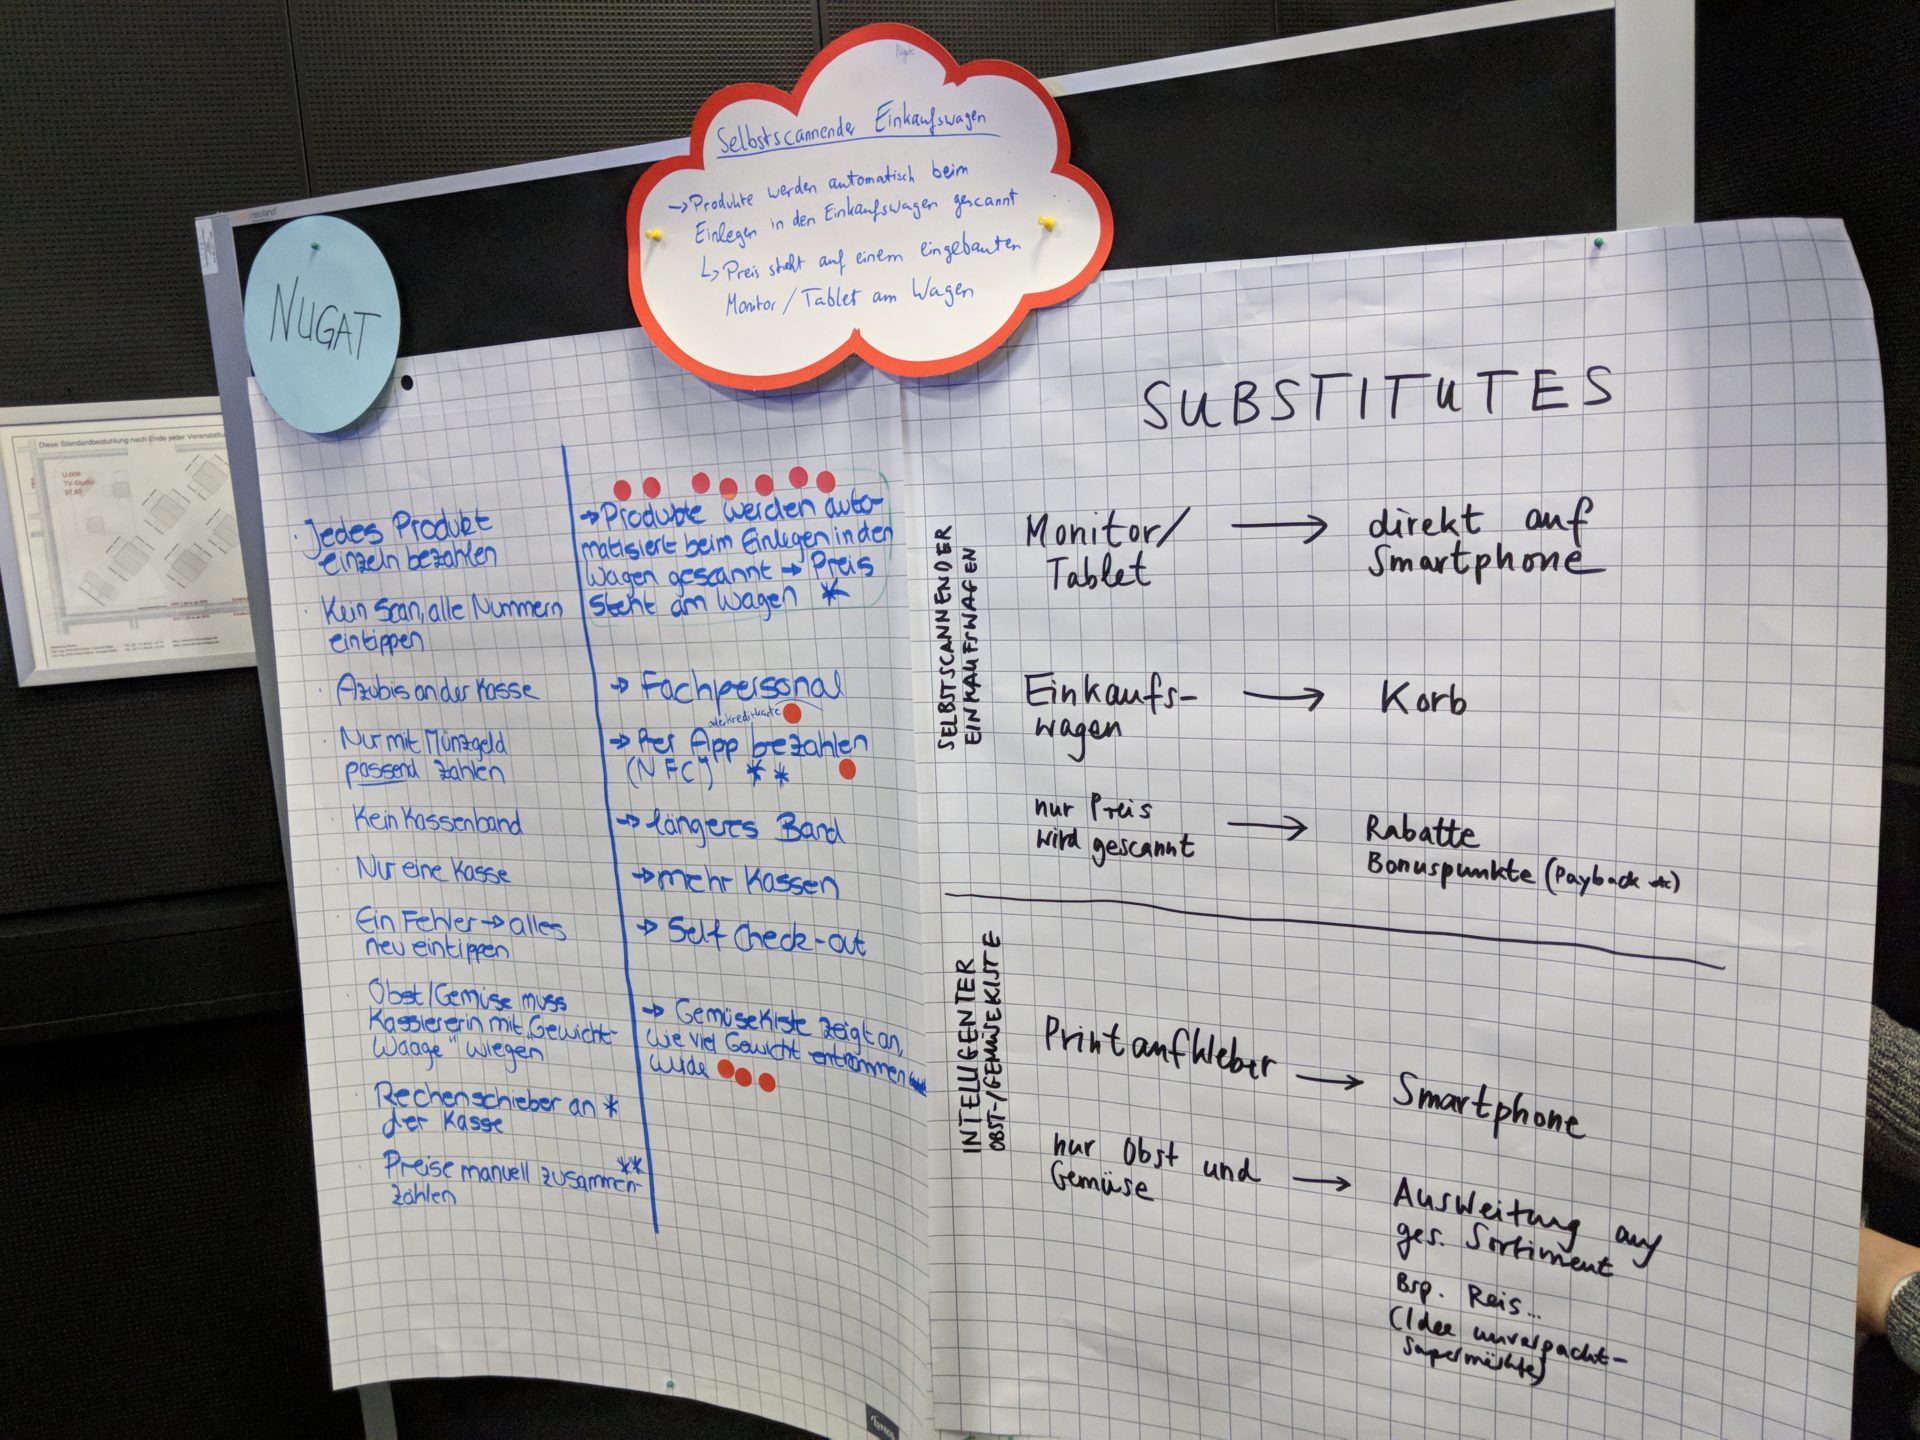 Nugat
Selbstscannender Einkaufswagen
-> Produkte werden automatisch beim
Einlegen in den Einkaufswagen gescannt
↳ Preis steht auf einem eingebauten
Monitor / Tablet am Wagen
neuland
NUGAT
Diese Standardbestuhlung nach Ende jeder Veranstaltu
TV-Studio
· Jedes Produkt
einzeln bezahlen
· Kein Scan, alle Nummern
eintippen
· Azubis an der Kasse
· Nur mit Münzgeld
passend zahlen
· Kein Kassenband
· Nur eine Kasse
· Ein Fehler -> alles
neu eintippen
· Obst/Gemüse muss
Kassiererin mit „Gewicht-
Waage" wiegen
Rechenschieber an *
der Kasse
Preise manuell zusammen- **
zählen
-> Produkte werden auto-
matisiert beim Einlegen in den
Wagen gescannt -> Preis
steht am Wagen *
-> Fachpersonal
oder Kreditkarte
-> Per App bezahlen
(NFC) * *
-> längeres Band
-> mehr Kassen
-> Self Check-out
-> Gemüsekiste zeigt an,
wie viel Gewicht entnommen
wurde
Lyreco
SUBSTITUTES
SELBSTSCANNENDER
EINKAUFSWAGEN
Monitor/ -> direkt auf
Tablet Smartphone
Einkaufs- -> Korb
wagen
nur Preis -> Rabatte
wird gescannt Bonuspunkte (Payback etc)
INTELLIGENTER
OBST-/GEMÜSEKISTE
Printaufkleber -> Smartphone
nur Obst und -> Ausweitung auf
Gemüse ges. Sortiment
Bsp. Reis...
(Idee unverpackt-
Supermärkte)